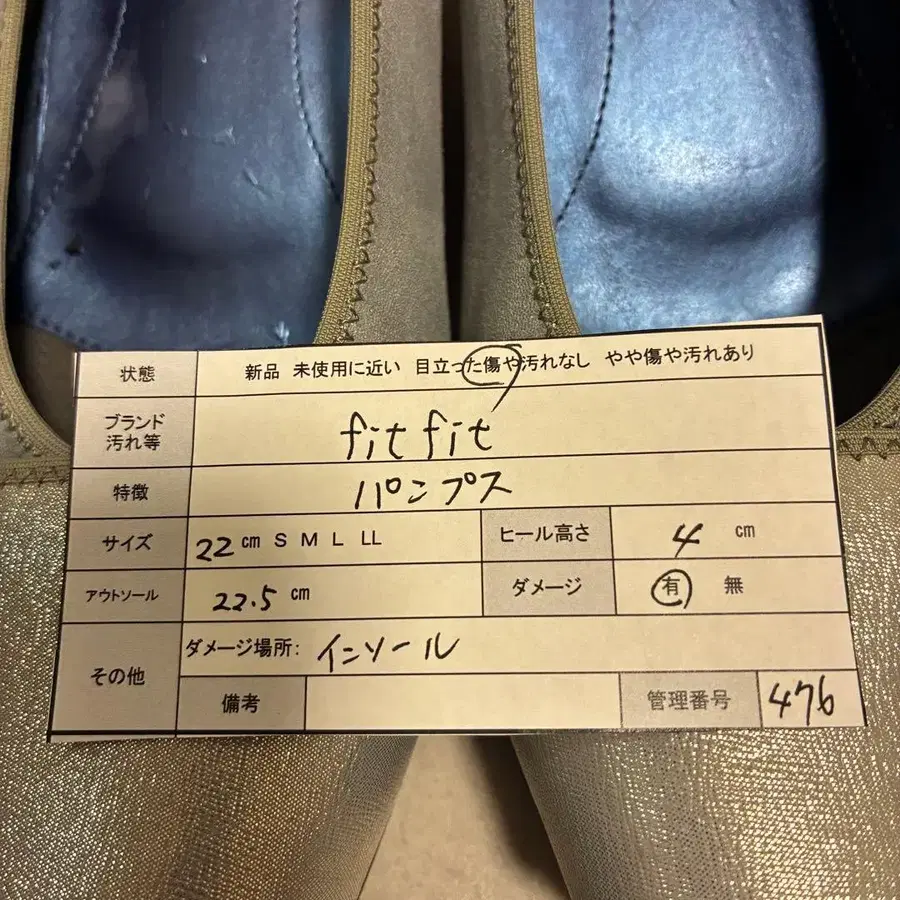 状態 新品 未使用に近い 目立った傷や汚れなし やや傷や汚れあり
ブランド
汚れ等 fitfit
特徴 パンプス
サイズ 22 cm S M L LL ヒール高さ 4 cm
アウトソール 22.5 cm ダメージ 有 無
その他 ダメージ場所: インソール
備考 管理番号 476